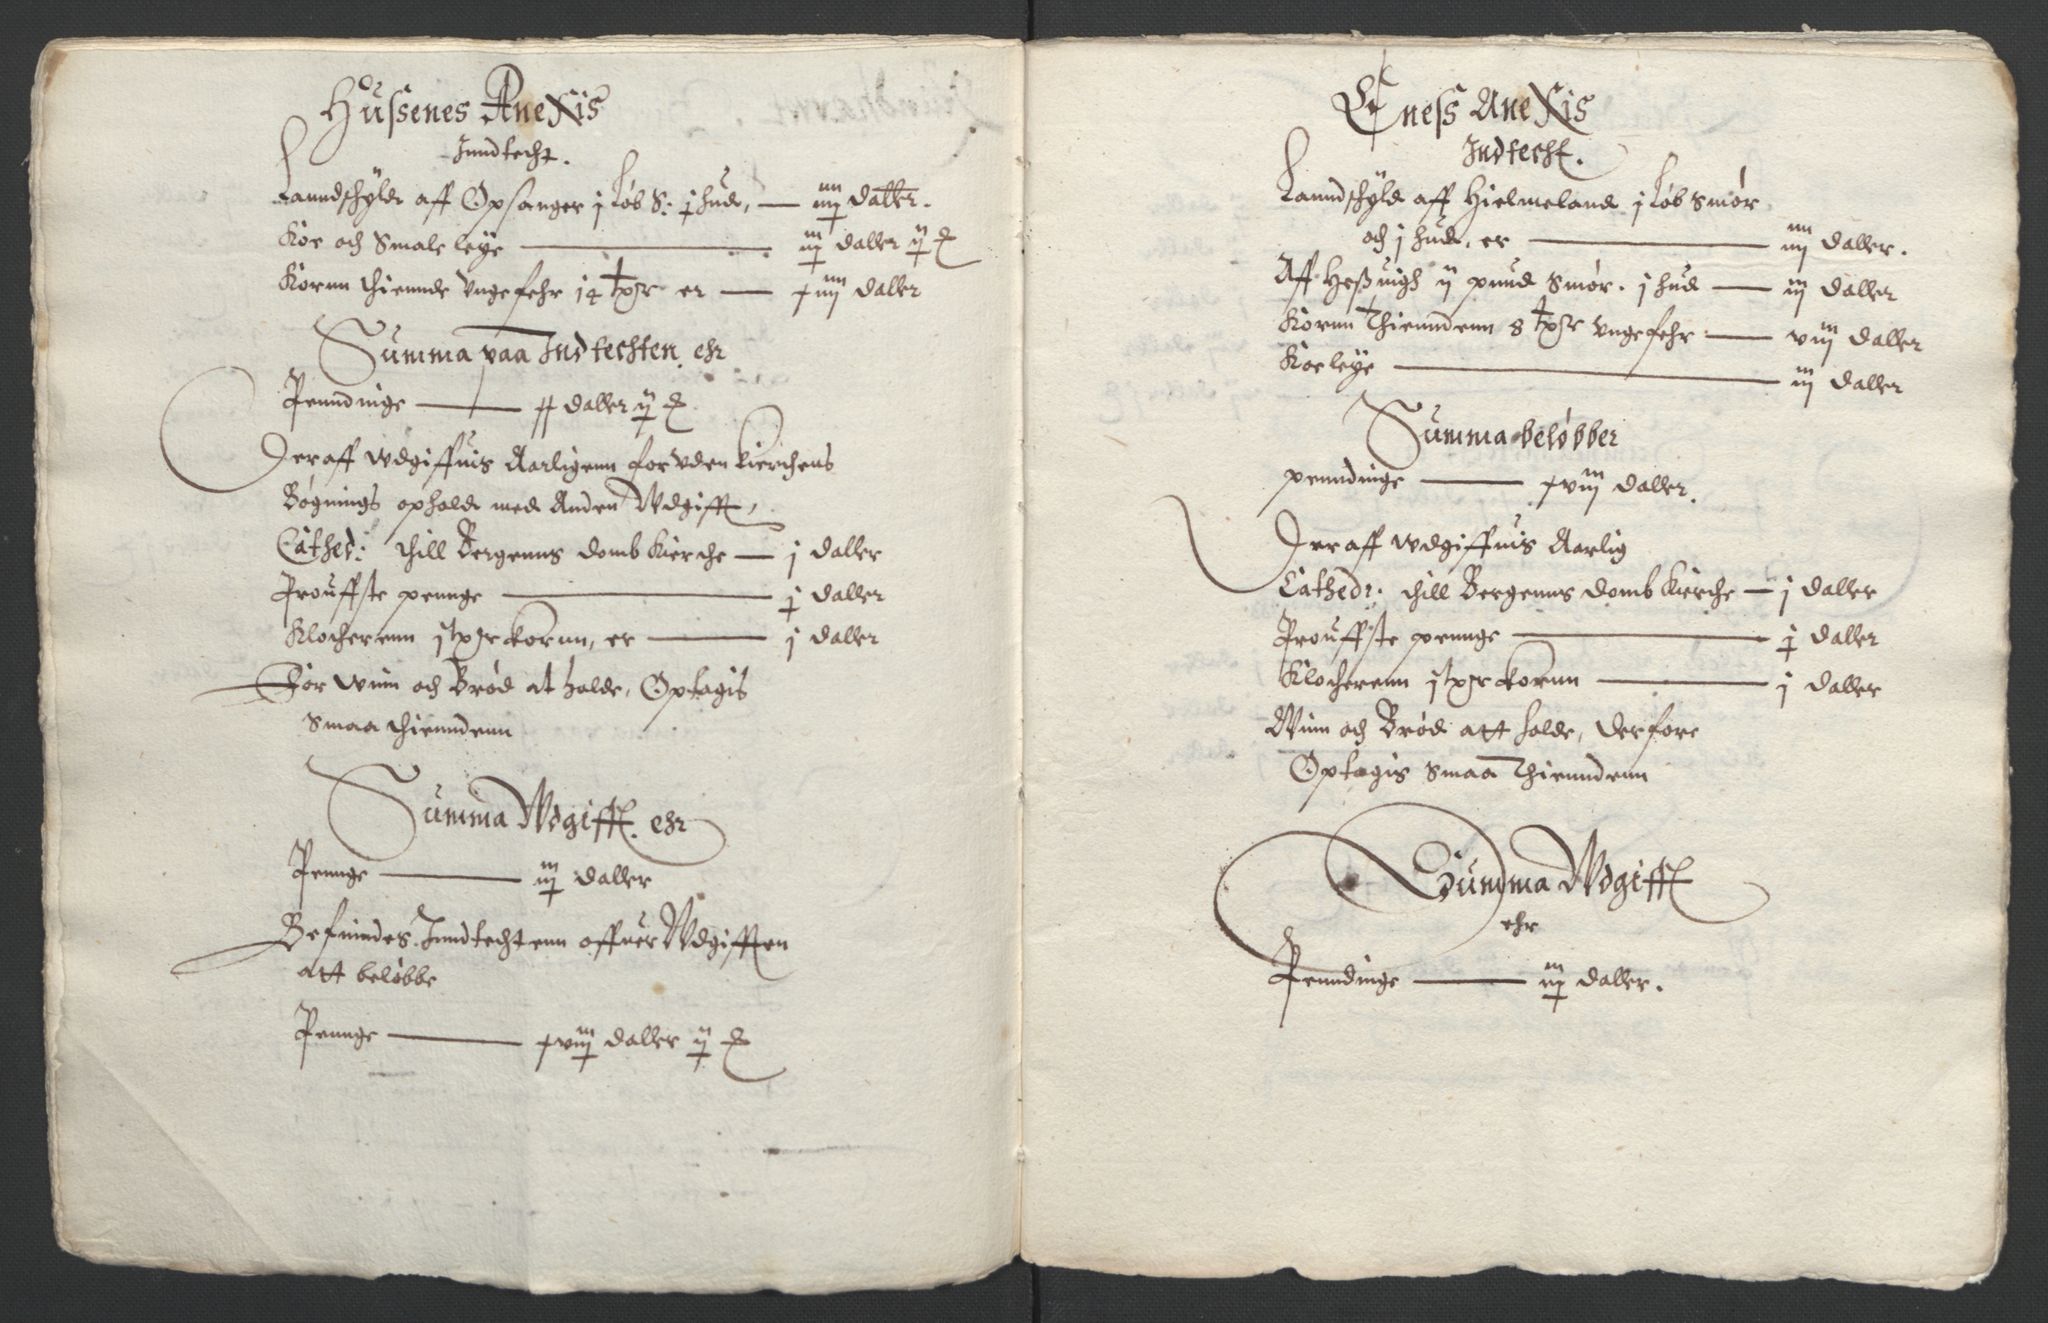 Hussenes AneXis
Inndtecht.
Lanndschyld aff Opsanger j Løb S: j hud, — iiij daller.
Koe och Smale leye — iij daller ij
Kornn thiennde Ungefehr 14 er — xiiij daller
Summa paa Indtechten ehr
Penndinge — xx daller ij
Der aff wdgiffuis Aarligenn foruden kierchens
Bøgnings ophold med Anden Wdgifft,
Cathed: thill Bergenns domb Kierche — j daller
Prouffste pennge — j daller
Klockerenn j kornn, er — j daller
For Wiin och Brød at holde, Optagis
Smaa thienndenn
Summa Wdgifft. ehr
Pennge — iij daller
Befindes Inndtechtenn offuer Wdgifften
att beløbbe
Pennge — xviij daller ij
Eness AneXis
Indtecht.
Lanndschyld aff Hielmeland j Løb Smør
och j hud, er — iiij daller.
Aff Hessuigh ij pund Smør. j hud — iij daller
Kornn Thienndenn 8 ungefehr — viij daller
Koe leye — iij daller
Summa beløbber
penndinge — xviij daller.
Der aff wdgiffuis Aarlig
Cathedr: thill Bergenns domb Kierche — j daller
Prouffste pennge — j daller
Klockerenn j kornn — j daller
Wiin och Brød att holde, derfore
Optagis Smaa Thienndenn
Summa Wdgifft
ehr
Penndinge — iij daller.